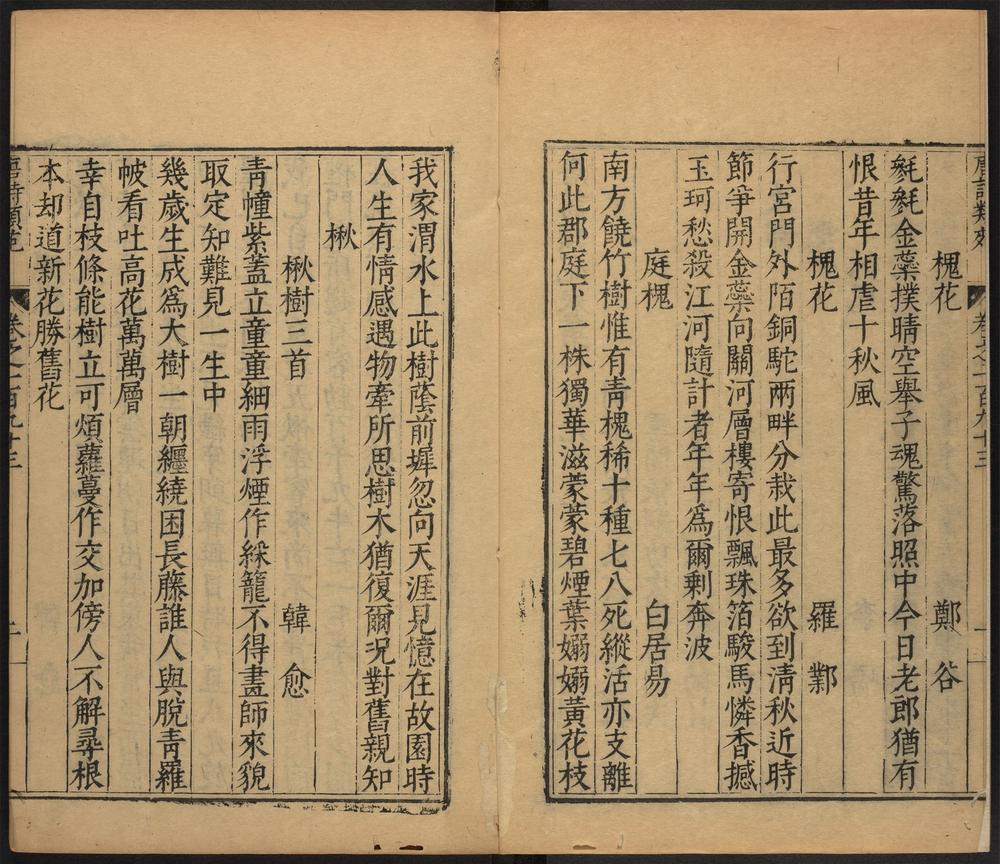 槐花 鄭谷
毿毿金蘂撲晴空舉子魂驚落照中今日老郎猶有
恨昔年相虐十秋風
槐花 羅鄴
行宮門外陌銅駝兩畔分栽此最多欲到清秋近時
節爭開金蘂向關河層樓寄恨飄珠箔駿馬憐香撼
玉珂愁殺江河隨計者年年爲爾剩奔波
庭槐 白居易
南方饒竹樹惟有青槐稀十種七八死縱活亦支離
何此郡庭下一株獨華滋蒙蒙碧煙葉嫋嫋黃花枝
我家渭水上此樹蔭前墀忽向天涯見憶在故園時
人生有情感遇物牽所思樹木猶復爾況對舊親知
楸
楸樹三首 韓愈
青幢紫蓋立童童細雨浮煙作綵籠不得畫師來貌
取定知難見一生中
幾歲生成爲大樹一朝纏繞困長藤誰人與脫青羅
帔看吐高花萬萬層
幸自枝條能樹立可煩蘿蔓作交加傍人不解尋根
本却道新花勝舊花